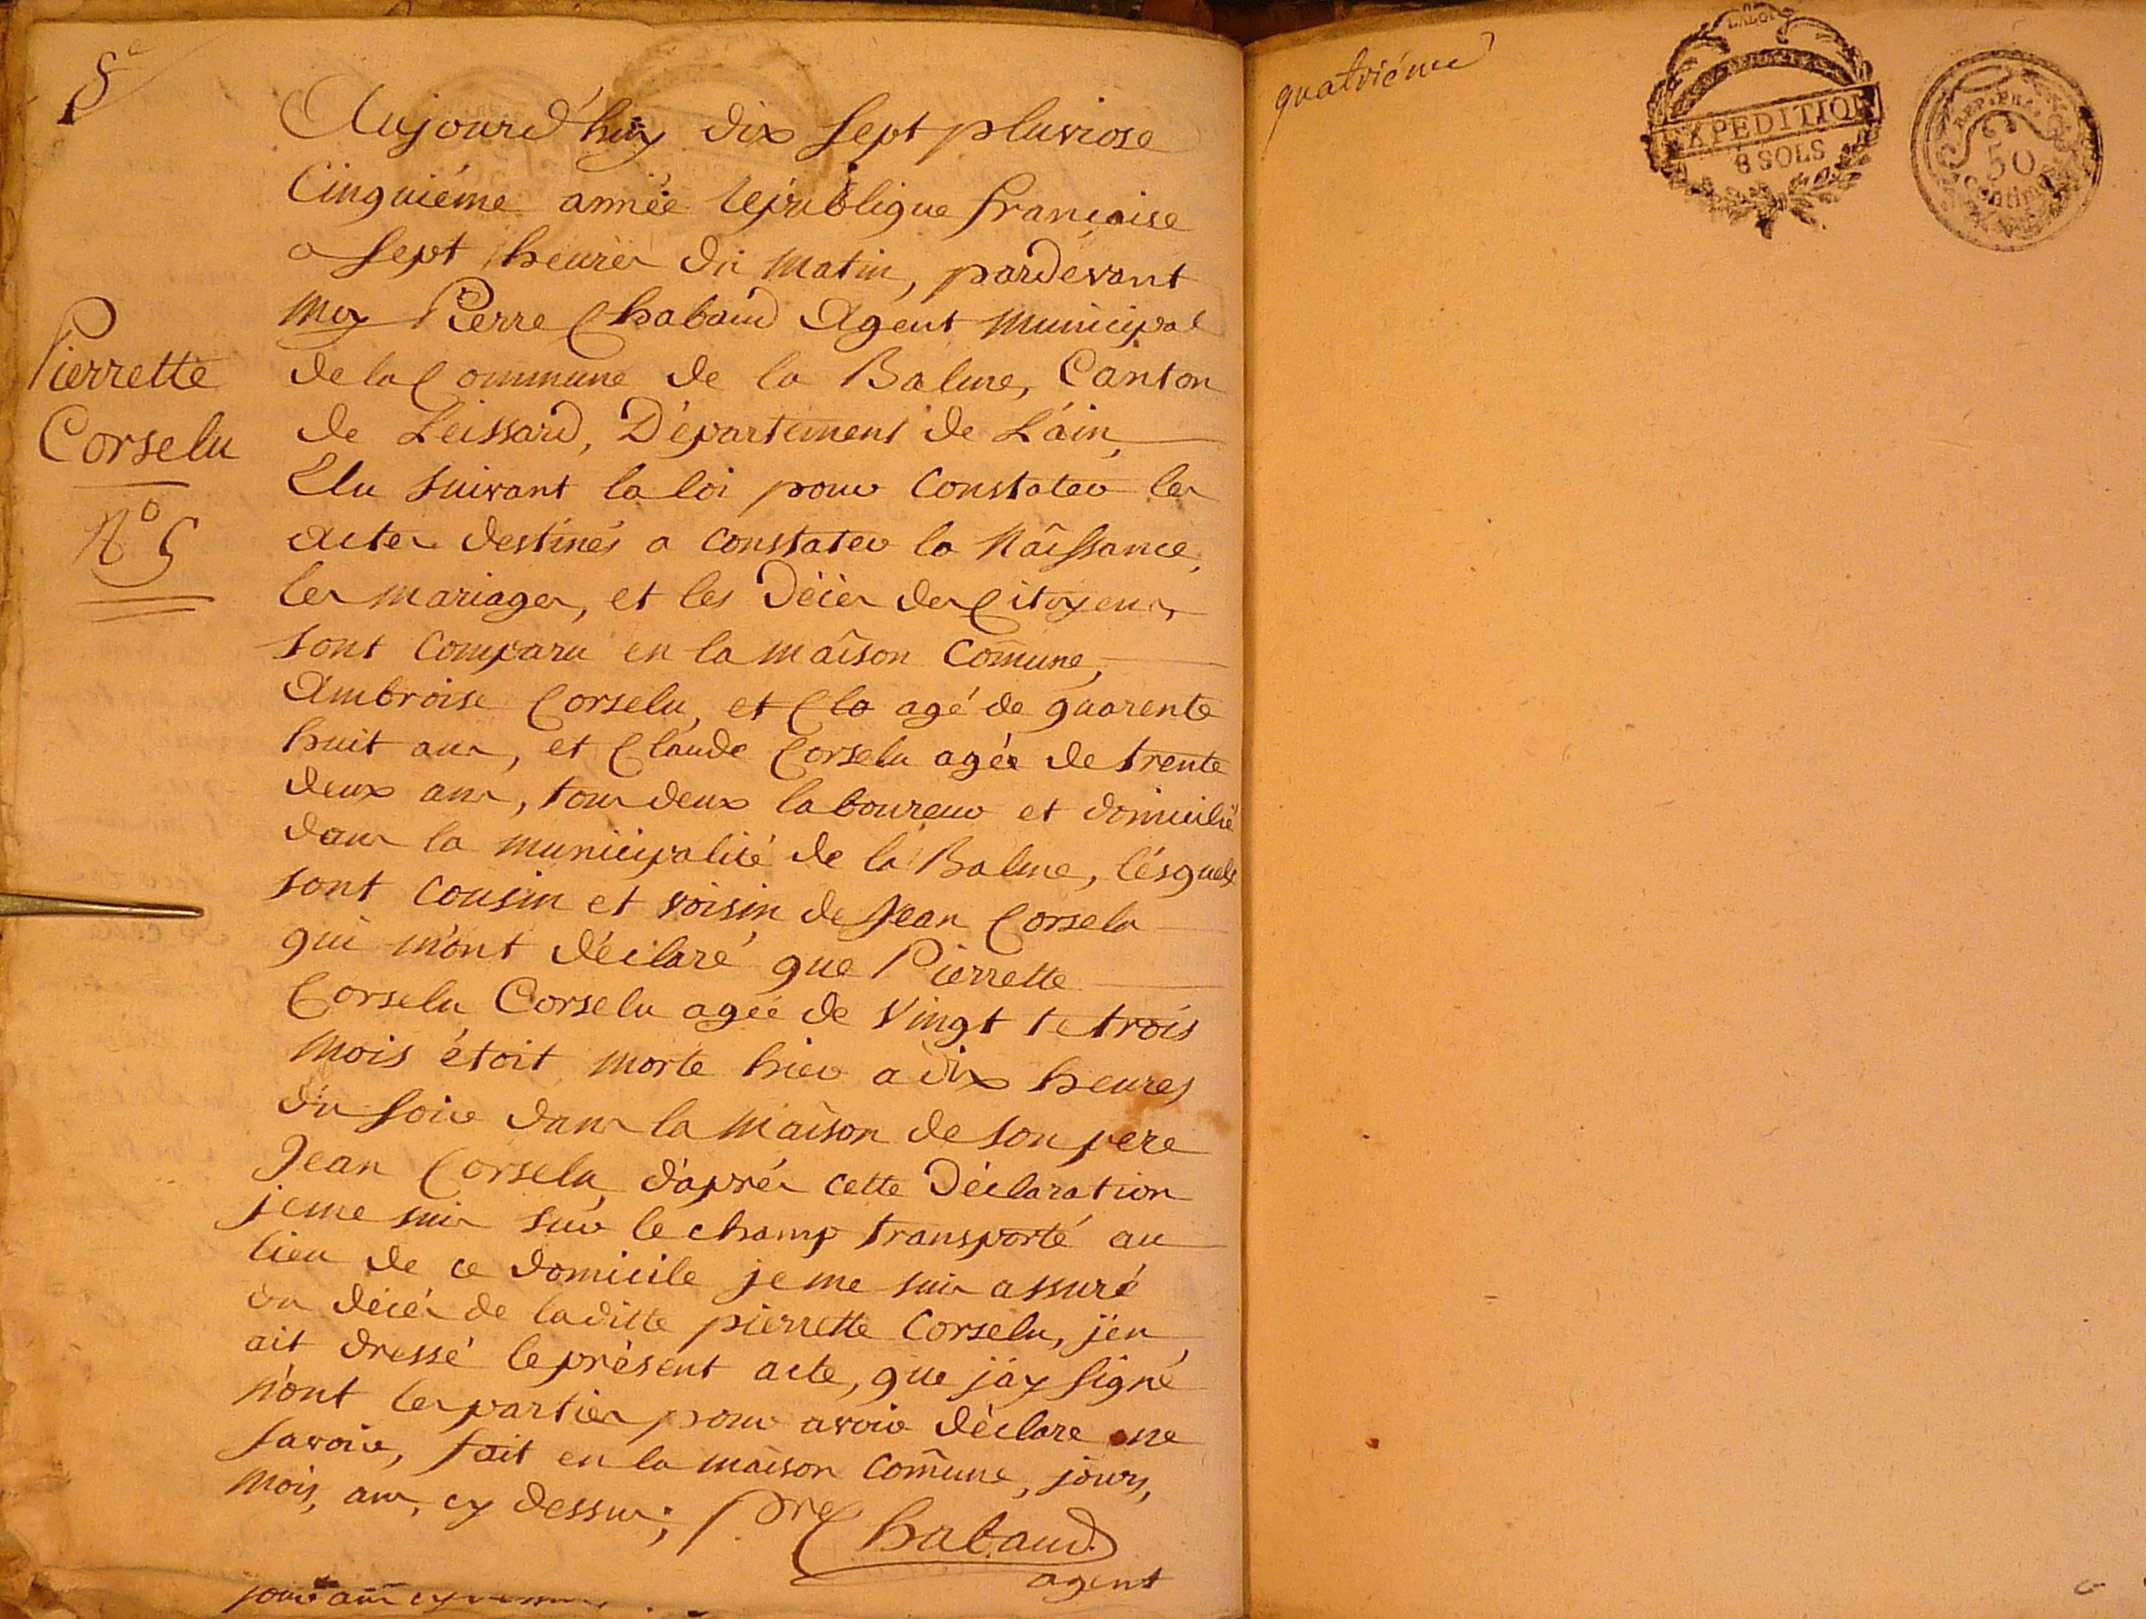 Pierrette
Corselu
N° 5
Aujourd'huy dix sept pluviose
Cinquiéme année republique française
a sept heures du matin, pardevant
moy Pierre Chabaud Agent municipal
de la Commune de la Balme, Canton
de Leissard, Département de L'áin,
Elu suivant la loi pour Constater les
actes destinés a constater la Nâissance,
les mariages, et les décès des Citoyens,
sont Comparu en la maîson Comune,
Ambroise Corselu, et Cla agé de quarente
huit ans, et Claude Corselu agée de trente
deux ans, tous deux laboureur et domicilié
dans la municipalité de la Balme, lésquels
sont cousin et voisin de Jean Corselu
qui m'ont déclaré que Pierrette
Corselu Corselu agée de vingt te trois
mois étoit morte hier a dix heures
du soir dans la maison de son pere
Jean Corselu, d'aprés cette Déclaration
je me suis sur le champ transporté au
lieu de ce domicile je me suis assuré
du décés de laditte pierrette Corselu, j'en
ait dressé le présent acte, que j'ay signé
n'ont les parties pour avoir déclare ne
savoir, fait en la maison Comune, jours,
mois, ans, cy dessus; Pre Chabaud
agent
quatriéme
LA LOI
EXPEDITION
8 SOLS
REP. FRA.
50
Centimes